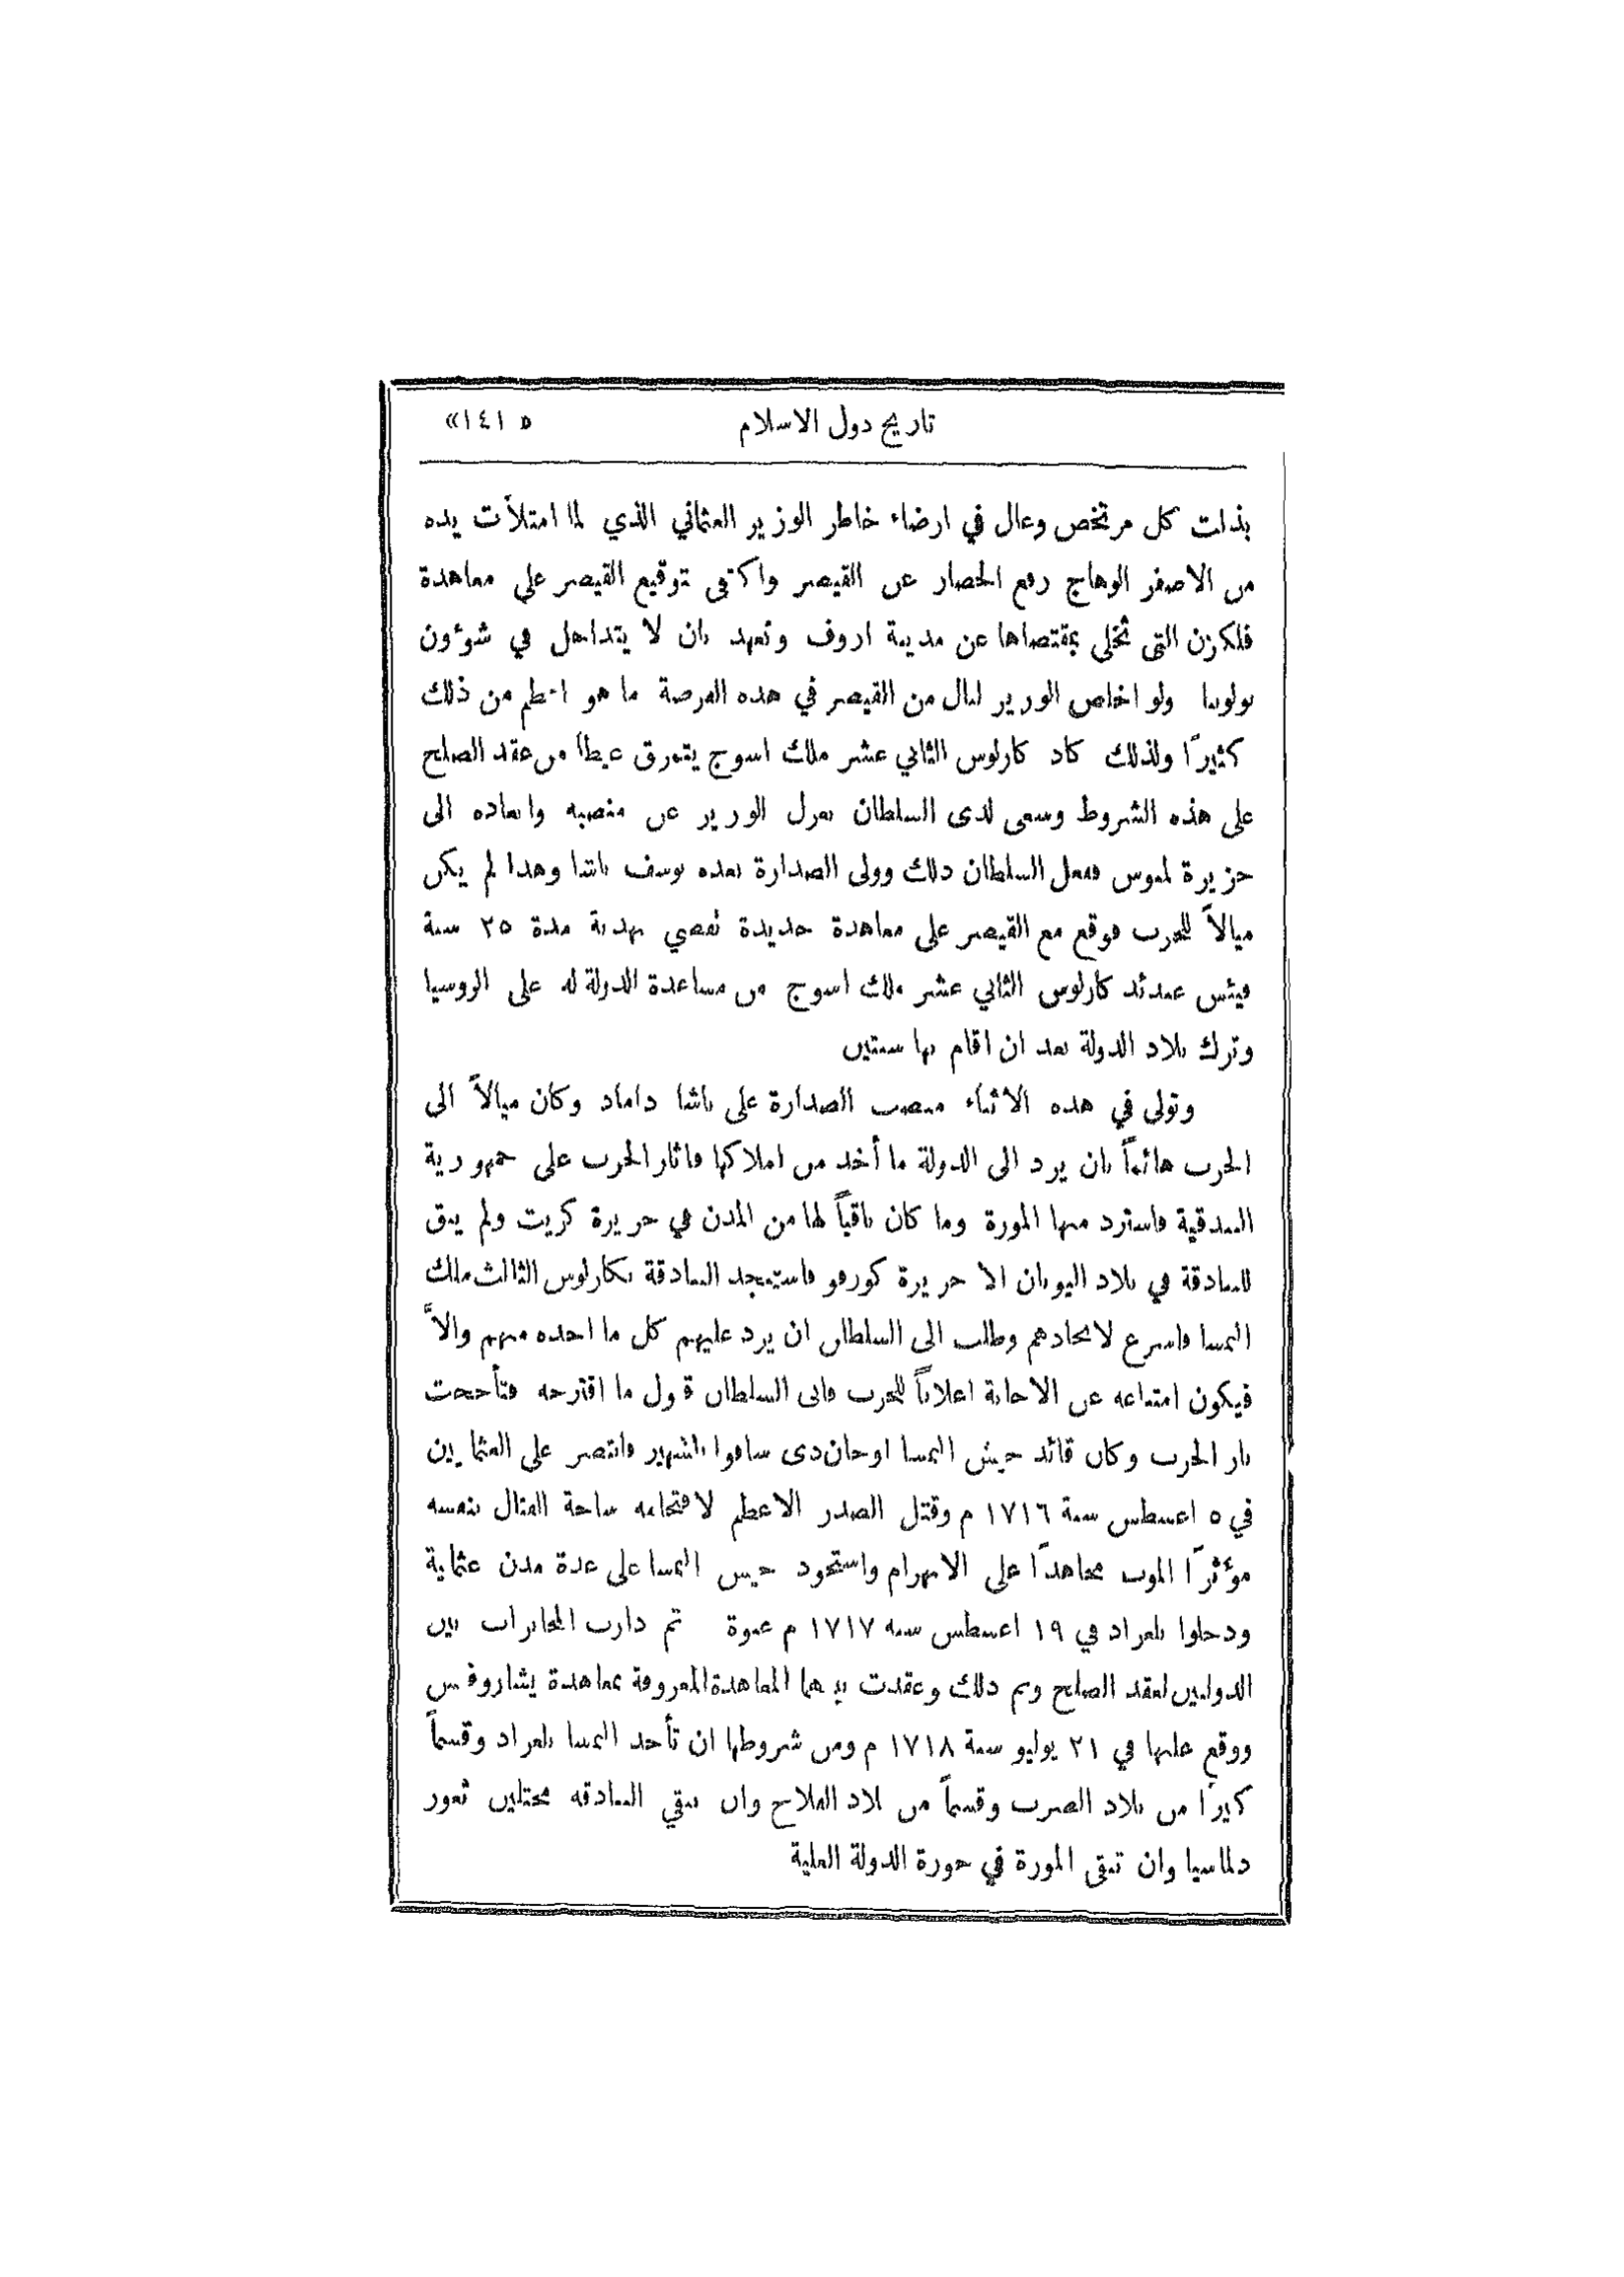 تاريخ دول الاسلام «١٤١»
بذلت كل مرتخص وغال في ارضاء خاطر الوزير العثماني الذي لما امتلأت يده
من الاصفر الوهاج رفع الحصار عن القيصر واكتفى بتوقيع القيصر على معاهدة
فلكزن التي تخلى بمقتضاها عن مدينة ازوف وتعهد بان لا يتداخل في شوءون
بولونيا ولو اخلص الوزير لنال من القيصر في هذه الفرصة ما هو اعظم من ذلك
كثيرًا ولذلك كاد كارلوس الثاني عشر ملك اسوج يتمزق غيظاً من عقد الصلح
على هذه الشروط وسعى لدى السلطان بعزل الوزير عن منصبه وابعاده الى
جزيرة لمنوس ففعل السلطان ذلك وولى الصدارة بعده يوسف باشا وهذا لم يكن
ميالاً للحرب فوقع مع القيصر على معاهدة جديدة تقضي بهدنة مدة ٢٥ سنة
فيئس عندئذ كارلوس الثاني عشر ملك اسوج من مساعدة الدولة له على الروسيا
وترك بلاد الدولة بعد ان اقام بها سنتين
وتولى في هذه الاثناء منصب الصدارة على باشا داماد وكان ميالاً الى
الحرب هائماً بان يرد الى الدولة ما أخذ من املاكها فاثار الحرب على جمهورية
البندقية فاسترد منها المورة وما كان باقياً لها من المدن في جزيرة كريت ولم يبق
للبنادقة في بلاد اليونان الا جزيرة كورفو فاستنجد البنادقة بكارلوس الثالث ملك
النمسا فاسرع لانجادهم وطلب الى السلطان ان يرد عليهم كل ما اخذه منهم والاَّ
فيكون امتناعه عن الاجابة اعلاناً للحرب فابى السلطان قبول ما اقترحه فتأججت
نار الحرب وكان قائد جيش النمسا اوجان دى سافوا الشهير فانتصر على العثمانيين
في ٥ اغسطس سنة ١٧١٦ م وقتل الصدر الاعظم لاقتحامه ساحة القتال بنفسه
موءثرًا الموت مجاهدًا على الانهزام واستحوذ جيش النمسا على عدة مدن عثمانية
ودخلوا بلغراد في ١٩ اغسطس سنه ١٧١٧ م عنوة ثم دارت المخابرات بين
الدولتين لعقد الصلح وتم ذلك وعقدت بينهما المعاهدة المعروفة بمعاهدة بشاروفس
ووقع عليها في ٢١ يوليو سنة ١٧١٨ م ومن شروطها ان تأخذ النمسا بلغراد وقسماً
كبيرًا من بلاد الصرب وقسماً من بلاد الفلاخ وان يبقي البنادقه محتلين ثغور
دلماسيا وان تبقى المورة في حوزة الدولة العلية